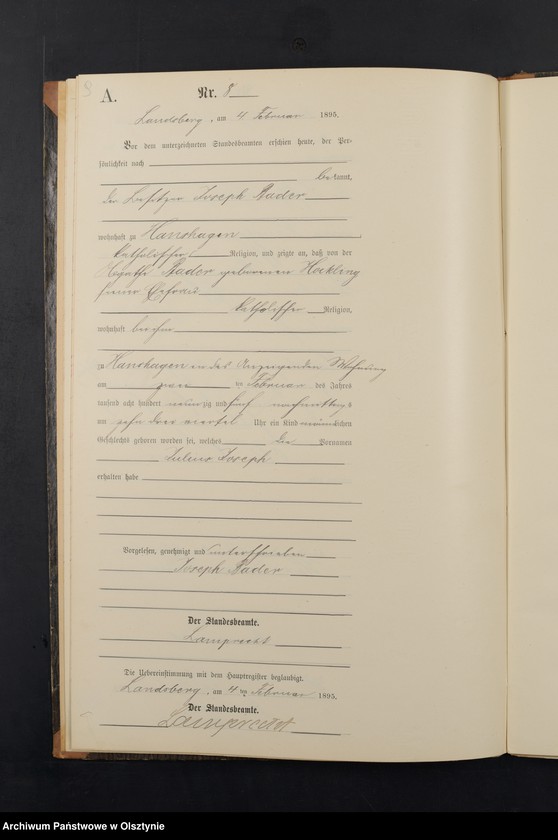 A.
Nr. 8
Landsberg, am 4 Februar 1895.
Vor dem unterzeichneten Standesbeamten erschien heute, der Per-
sönlichkeit nach
bekannt,
der Besitzer Joseph Bader
wohnhaft zu Hanshagen
katholischer Religion, und zeigte an, daß von der
Agathe Bader geborenen Hockling
seiner Ehefrau
katholischer Religion,
wohnhaft bei ihm
zu Hanshagen in des Anzeigenden Wohnung
am zwei ten Februar des Jahres
tausend acht hundert neunzig und fünf nachmittags
um zehn drei viertel Uhr ein Kind männlichen
Geschlechts geboren worden sei, welches die Vornamen
Julius Joseph
erhalten habe
Vorgelesen, genehmigt und unterschrieben
Joseph Bader
Der Standesbeamte.
Lamprecht
Die Uebereinstimmung mit dem Hauptregister beglaubigt.
Landsberg, am 4 ten Februar 1895.
Der Standesbeamte.
Lamprecht
Archiwum Państwowe w Olsztynie